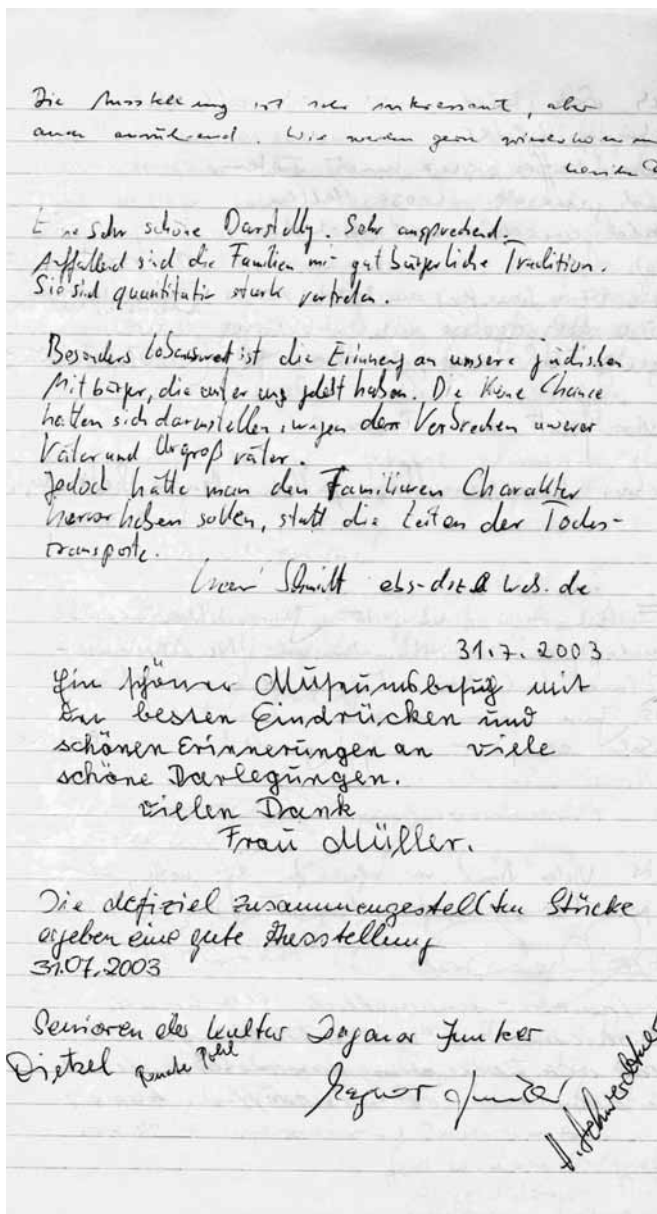 Die Ausstellung ist sehr interessant, aber
auch anrührend. Wir werden gern wiederkommen
Eine sehr schöne Darstellg. Sehr ansprechend.
Auffallend sind die Familien mit gut bürgerliche Tradition.
Sie sind quantitativ stark vertreten.
Besonders lobenswert ist die Erinnerg an unsere jüdischen
Mitbürger, die unter uns gelebt haben. Die keine Chance
hatten sich darzustellen, wegen dem Verbrechen unserer
Väter und Urgroßväter.
Jedoch hätte man den Familiären Charakter
hervorheben sollen, statt die Listen der Todes-
transporte.
Schmidt web.de
31.7.2003
Ein schöner Museumsbesuch mit
den besten Eindrücken und
schönen Erinnerungen an viele
schöne Darlegungen.
vielen Dank
Frau Müller.
Die defiziel zusammengestellten Stücke
ergeben eine gute Ausstellung
31.07.2003
Senioren der Kultur Dagmar Junker
Dietzel Pohl
Dagmar Junker